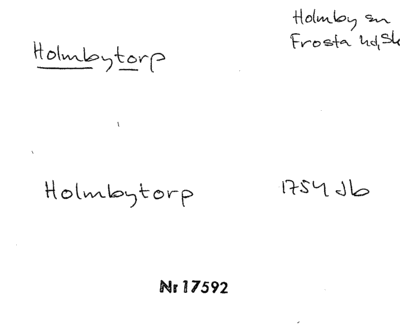 Holmby sn
Frosta hd, Sk
Holmbytorp
Holmbytorp 1754 Jb
Nr 17592